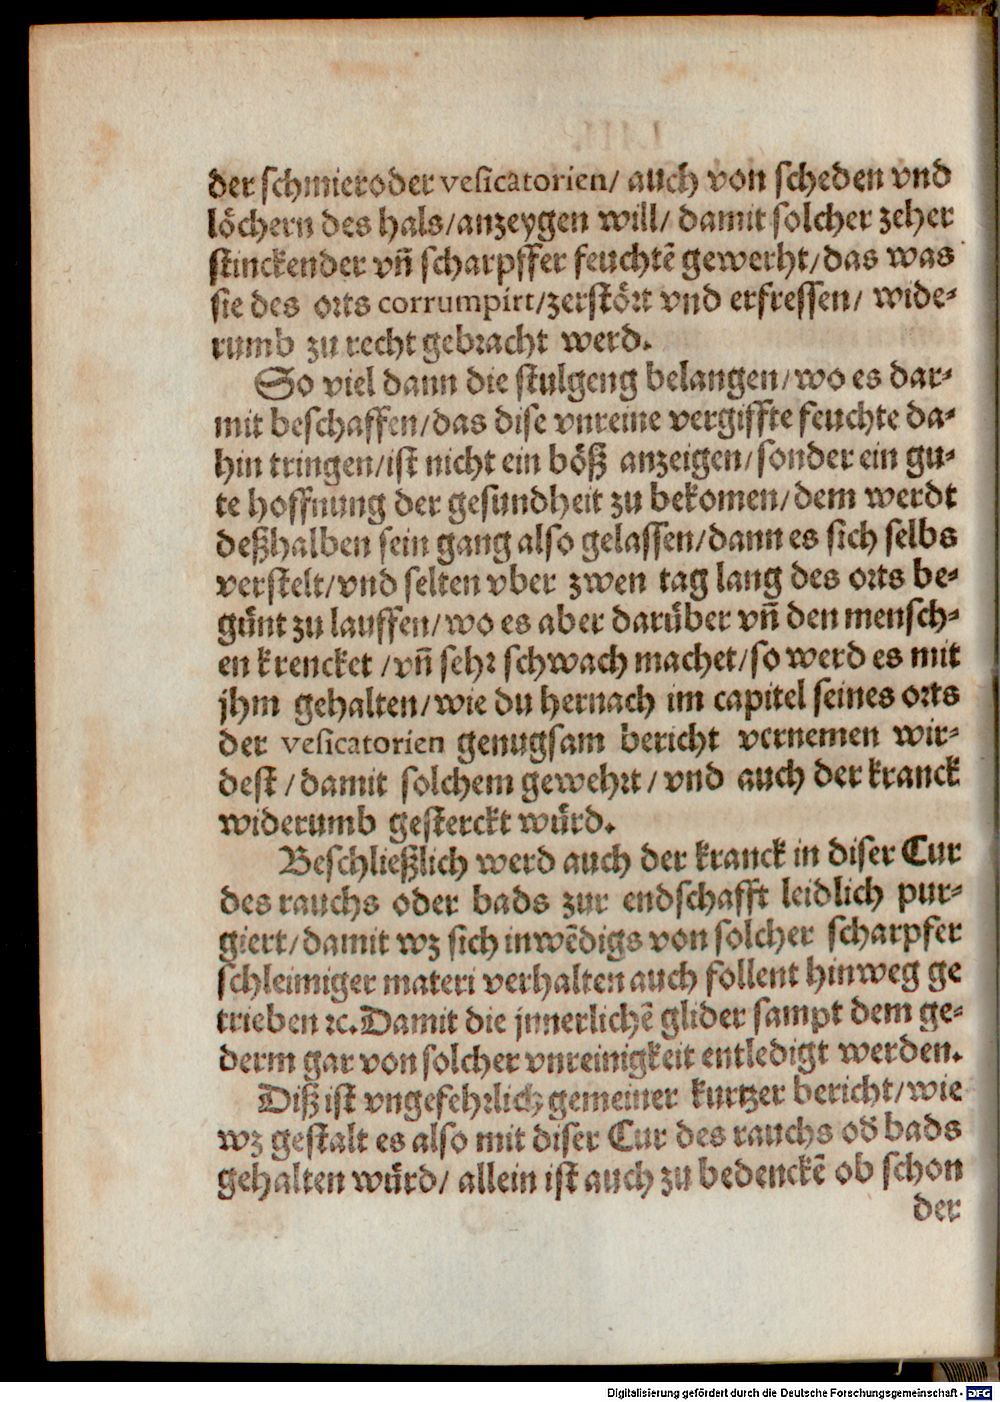 der schmier oder vesicatorien/ auch von scheden vnd
löchern des hals/anzeygen will/ damit solcher zeher
stinckender vñ scharpffer feuchtẽ gewerht/das was
sie des orts corrumpirt/zerstört vnd erfressen/ wide-
rumb zu recht gebracht werd.
So viel dann die stulgeng belangen/wo es dar-
mit beschaffen/das dise vnreine vergiffte feuchte da-
hin tringen/ist nicht ein böß anzeigen/sonder ein gu-
te hoffnung der gesundheit zu bekomen/dem werdt
deßhalben sein gang also gelassen/dann es sich selbs
verstelt/vnd selten vber zwen tag lang des orts be-
günt zu lauffen/wo es aber darüber vñ den mensch-
en krencket /vñ sehr schwach machet/so werd es mit
jhm gehalten/wie du hernach im capitel seines orts
der vesicatorien genugsam bericht vernemen wir-
dest /damit solchem gewehrt/vnd auch der kranck
widerumb gesterckt würd.
Beschließlich werd auch der kranck in diser Cur
des rauchs oder bads zur endschafft leidlich pur-
giert/damit wz sich inwẽdigs von solcher scharpfer
schleimiger materi verhalten auch follent hinweg ge
trieben ꝛc. Damit die jnnerlichẽ glider sampt dem ge-
derm gar von solcher vnreinigkeit entledigt werden.
Diß ist vngefehrlich gemeiner kurtzer bericht/wie
wz gestalt es also mit diser Cur des rauchs od̃ bads
gehalten würd/ allein ist auch zu bedenckẽ ob schon
der
Digitalisierung gefördert durch die Deutsche Forschungsgemeinschaft - DFG